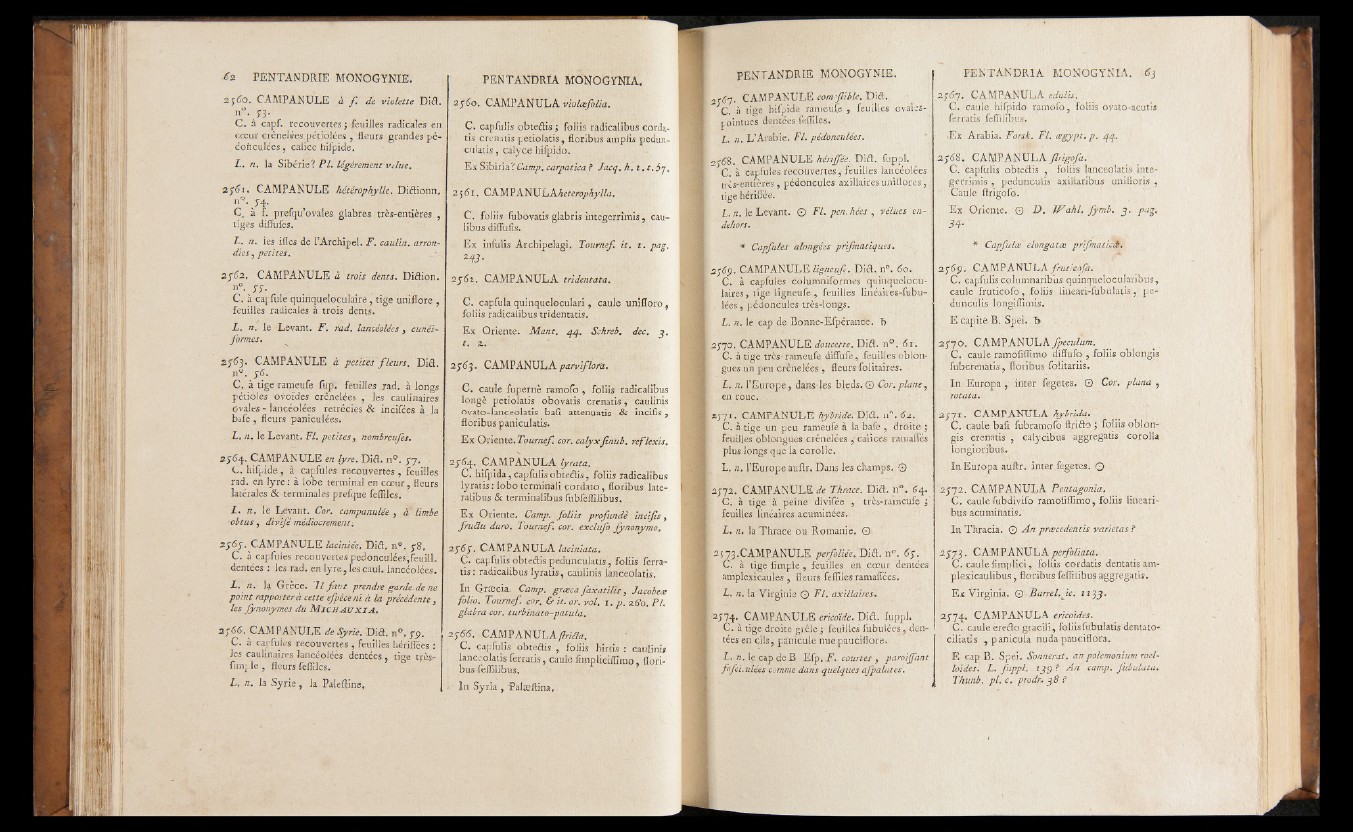 62 PENTANDRIE MONOGYNIE.
2560. CAMPANULE à f. de violette Dict.
n°. 53.
C. à capf. recouvertes ; feuilles radicales en
cœur crénelées pétiolées, fleurs grandes pé-
donculées, calice hifpide.
L. n. la Sibérie? Pl. légérement velue.
2561. CAMPANULE hétérophylle. Dictionn.
n°. 54.
C. à f. prefqu'ovales glabres très-entières,
tiges diffufes.
L. n. les ifles de l'Archipel. F. caulin. arron-
dies, petites.
2562. CAMPANULE à trois dents. Diction.
n°. 55.
C. à capfule quinqueloculaire, tige uniflore,
feuilles radicales à trois dents.
L. n. le Levant. F. rad. lancéolées, cunéi-
formes.
2563. CAMPANULE à petites fleurs. Dict.
n°. 56.
C. à tige rameufe fup. feuilles rad. à longs
pétioles ovoides crénelées, les caulinaires
ovales-lancéolées retrécies & incifées à la
bafe, fleurs paniculées.
L. n. le Levant. Fl. petites, nombreufes.
2564. CAMPANULE en lyre. Dict. n°. 57.
C. hifpide, à capfules recouvertes, feuilles
rad. en lyre : à lobe terminal en cœur, fleurs
latérales & terminales prefque feffiles.
L. n. le Levant. Cor. campanulée, à limbe
obtus, divifé médiocrement.
2565. CAMPANULE laciniée. Dict. n°. 58.
C. à capfules recouvertes pédonculées, feuill.
dentées : les rad. en lyre, les caul. lancéolées.
L. n. la Grèce. Il faut prendre garde de ne
point rapporter à cette efpèce ni à la précédente,
les fynonymes du MICHAUXIA.
2566. CAMPANULE de Syrie. Dict. n°. 59.
C. à capfules recouvertes, feuilles hériffées :
les caulinaires lancéolées dentées, tige très-
fimple, fleurs feffiles.
L. n. la Syrie, la Paleftine.
PENTANDRIA MONOGYNIA.
2560. CAMPANULA violæfolia.
C. capfulis obtectis ; foliis radicalibus corda-
tis crenatis petiolatis, floribus amplis pedun-
culatis, calyce hifpido.
Ex Sibiria? Camp. carpatica? Jacq. h. t. t. 57.
2561. CAMPANULA heterophylla.
C. foliis fubovatis glabris integerrimis, cau-
libus diffufis.
Ex infulis Archipelagi. Tournef. it. 1. pag.
243.
2562. CAMPANULA tridentata.
C. capfula quinqueloculari, caule unifloro,
foliis radicalibus tridentatis.
Ex Oriente. Mant. 44. Schreb. dec. 3.
t. 2.
2563. CAMPANULA parviflora.
C. caule fupernè ramofo, foliis radicalibus
longè petiolatis obovatis crenatis, caulinis
ovato-lanceolatis bafi attenuatis & incifis,
floribus paniculatis.
Ex Oriente. Tournef. cor. calyx finub. reflexis.
2564. CAMPANULA lyrata.
C. hifpida, capfulis obtectis, foliis radicalibus
lyratis : lobo terminali cordato, floribus late-
ralibus & terminalibus fubfeffilibus.
Ex Oriente. Camp. foliis profundè incifis,
fructu duro. Tournef. cor. exclufo fynonymo.
2565. CAMPANULA laciniata.
C. capfulis obtectis pedunculatis, foliis ferra-
tis : radicalibus lyratis, caulinis lanceolatis.
In Græcia. Camp. græca faxatilis, Jacobeæ
folio. Tournef. cor. & it. or. vol. 1. p. 260. Pl.
glabra cor. turbinato-patula.
2566. CAMPANULA ftricta.
C. capfulis obtectis, foliis hirtis : caulinis
lanceolatis ferratis, caule fimpliciffimo, flori-
bus feffilibus.
In Syria, Palæftina.
PENTANDRIE MONOGYNIE.
2567. CAMPANULE comeftible. Dict.
C. à tige hifpide rameufe, feuilles ovales-
pointues dentées feffiles.
L. n. L'Arabie. Fl. pédonculées.
2568. CAMPANULE hériffée. Dict. fuppl.
C. à capfules recouvertes, feuilles lancéolées
très-entières, pédoncules axillaires uniflores,
tige hériffée.
L. n. le Levant. ☉ Fl. penchées, velues en-
dehors.
* Capfules alongées prifmatiques.
2569. CAMPANULE ligneufe. Dict. n°. 60.
C. à capfules columniformes quinquelocu-
laires, tige ligneufe, feuilles linéaires-fubu-
lées, pédoncules très-longs.
L. n. le cap de Bonne-Efpérance. ♄
2570. CAMPANULE doucette. Dict. n°. 61.
C. à tige très-rameufe diffufe, feuilles oblon-
gues un peu crénelées, fleurs folitaires.
L. n. l'Europe, dans les bleds. ☉ Cor. plane,
en roue.
2571. CAMPANULE hybride. Dict. n°. 62.
C. à tige un peu rameufe à la bafe, droite ;
feuilles oblongues crénelées, calices ramaffés
plus longs que la corolle.
L. n. l'Europe auftr. Dans les champs. ☉
2572. CAMPANULE de Thrace. Dict. n°. 64.
C. à tige à peine divifée, très-rameufe ;
feuilles linéaires acuminées.
L. n. la Thrace ou Romanie. ☉
2573. CAMPANULE perfoliée. Dict. n°. 65.
C. à tige fimple, feuilles en cœur dentées
amplexicaules, fleurs feffiles ramaffées.
L. n. la Virginie ☉ Fl. axillaires.
2574. CAMPANULE ericoïde. Dict. fuppl.
C. à tige droite grêle ; feuilles fubulées, den-
tées en cils, panicule nue pauciflore.
L. n. le cap de B Efp. F. courtes, paroiffant
fafciculées comme dans quelques afpalates.
PENTANDRIA MONOGYNIA. 63
2567. CAMPANULA edulis.
C. caule hifpido ramofo, foliis ovato-acutis
ferratis feffilibus.
Ex Arabia. Forsk. Fl. ægypt. p. 44.
2568. CAMPANULA ftrigofa.
C. capfulis obtectis, foliis lanceolatis inte-
gerrimis, pedunculis axillaribus unifloris,
Caule ftrigofo.
Ex Oriente. ☉ D. Wahl. fymb. 3. pag.
34.
* Capfulæ elongatæ prifmaticæ.
2569. CAMPANULA fruticofa.
C. capfulis columnaribus quinquelocularibus,
caule fruticofo, foliis lineari-fubulatis, pe-
dunculis longiffimis.
E capite B. Spei. ♄
2570. CAMPANULA fpeculum.
C. caule ramofiffimo diffufo, foliis oblongis
fubcrenatis, floribus folitariis.
In Europa, inter fegetes. ☉ Cor. plana,
rotata.
2571. CAMPANULA hybrida.
C. caule bafi fubramofo ftricto ; foliis oblon-
gis crenatis, calycibus aggregatis corolla
longioribus.
In Europa auftr. inter fegetes. ☉
2572. CAMPANULA Pentagonia.
C. caule fubdivifo ramofiffimo, foliis lineari-
bus acuminatis.
In Thracia. ☉ An præcedentis varietas?
2573. CAMPANULA perfoliata.
C. caule fimplici, foliis cordatis dentatis am-
plexicaulibus, floribus feffilibus aggregatis.
Ex Virginia. ☉ Barrel. ic. 1133.
2574. CAMPANULA ericoides.
C. caule erecto gracili, foliis fubulatis dentato-
ciliatis, panicula nuda pauciflora.
E cap B. Spei. Sonnerat. an polemonium roel-
loides. L. fuppl. 139? An camp. fubulata.
Thunb. pl. c. prodr. 38?